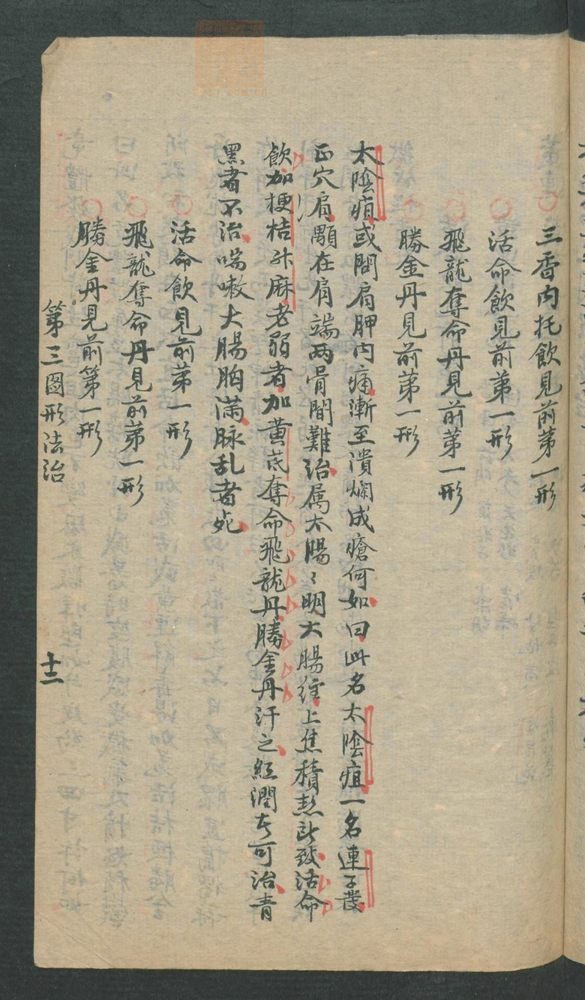 三香內托飲見前第一形
活命飲見前第一形
飛龍奪命丹見前第一形
勝金丹見前第一形
太陰疽或問肩胛內痛漸至潰爛成瘡何如曰此名太陰疽一名連子發
正穴肩顒在肩端两骨間難治属太陽〻明大腸經上焦積熱所致活命
飲加梗桔升麻老弱者加黃茋奪命飛龍丹勝金丹汗之紅潤者可治青
黑者不治喘嗽大腸胸满脉乱者死
活命飲見前第一形
飛龍奪命丹見前第一形
勝金丹見前第一形
第三圖形法治
十二